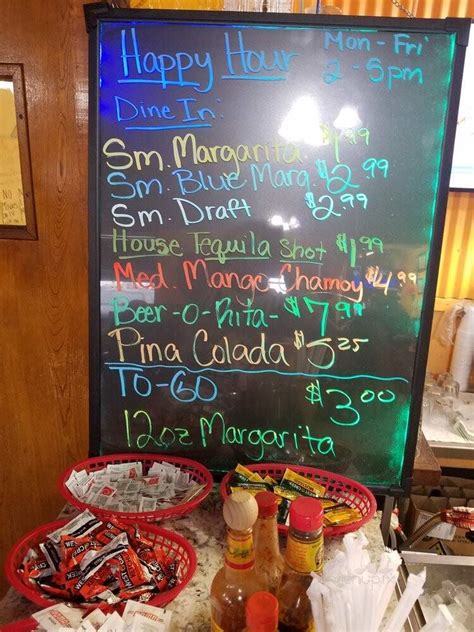 Happy Hour Mon-Fri
2-5pm
Dine In:
Sm. Margarita $1.99
Sm. Blue Marg. $2.99
Sm. Draft $2.99
House Tequila Shot $1.99
Med. Mango Chamoy $4.99
Beer-o-Rita- $7.99
Pina Colada $5.25
TO-GO $3.00
12oz Margarita